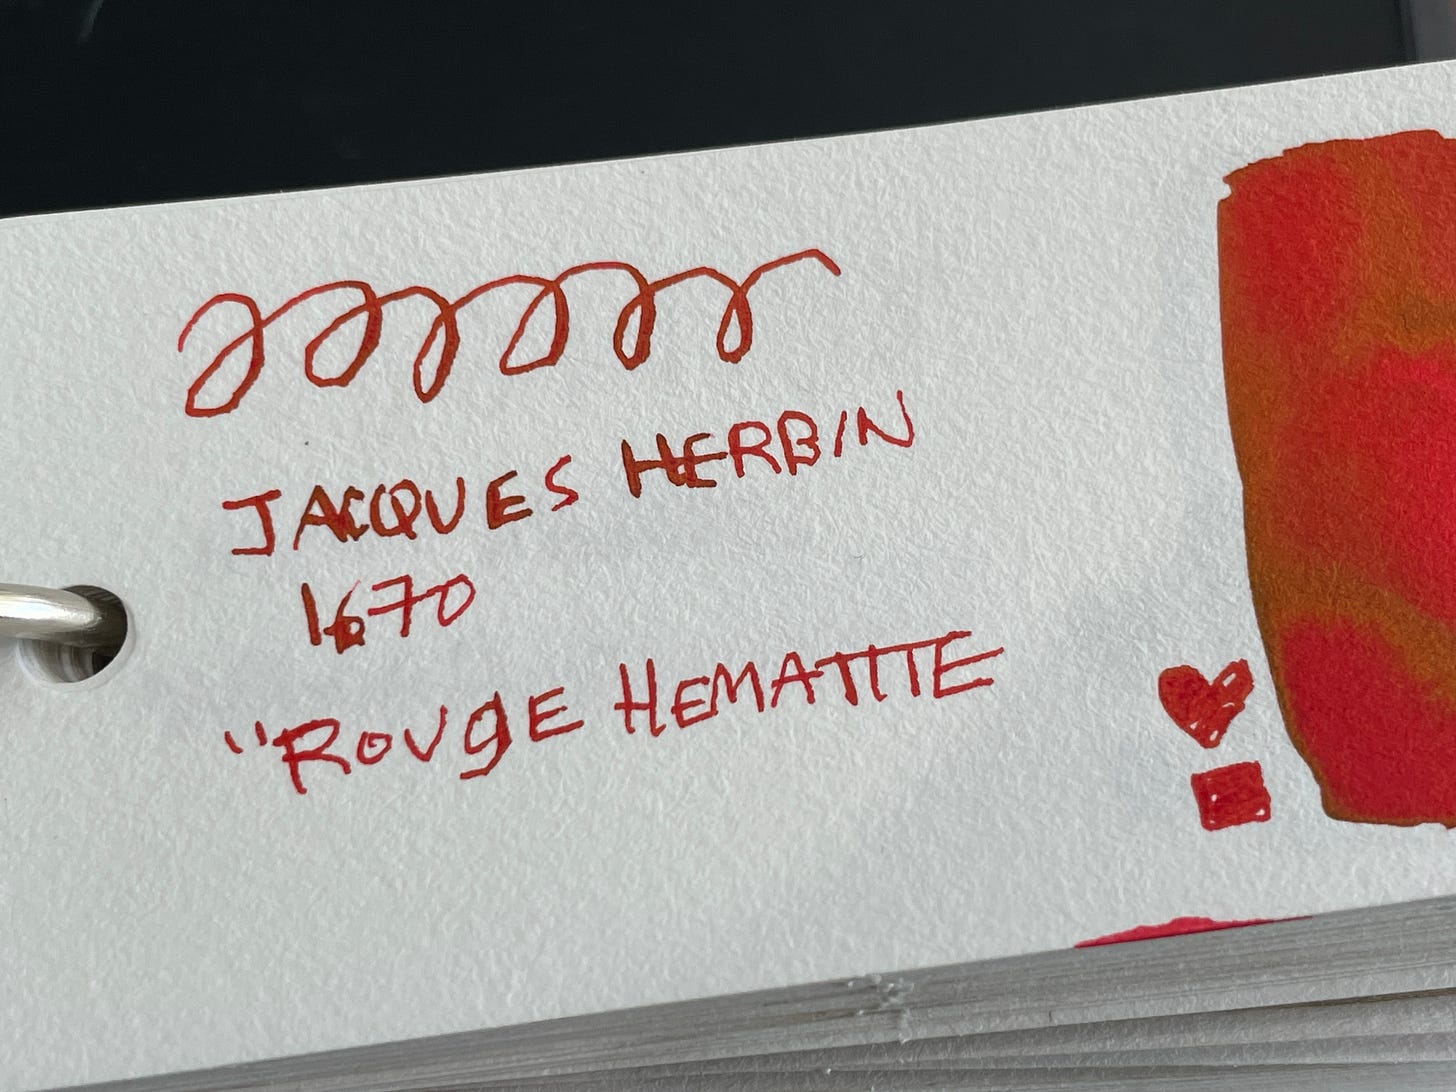 JACQUES HERBIN
1670
"ROUgE HEMATITE